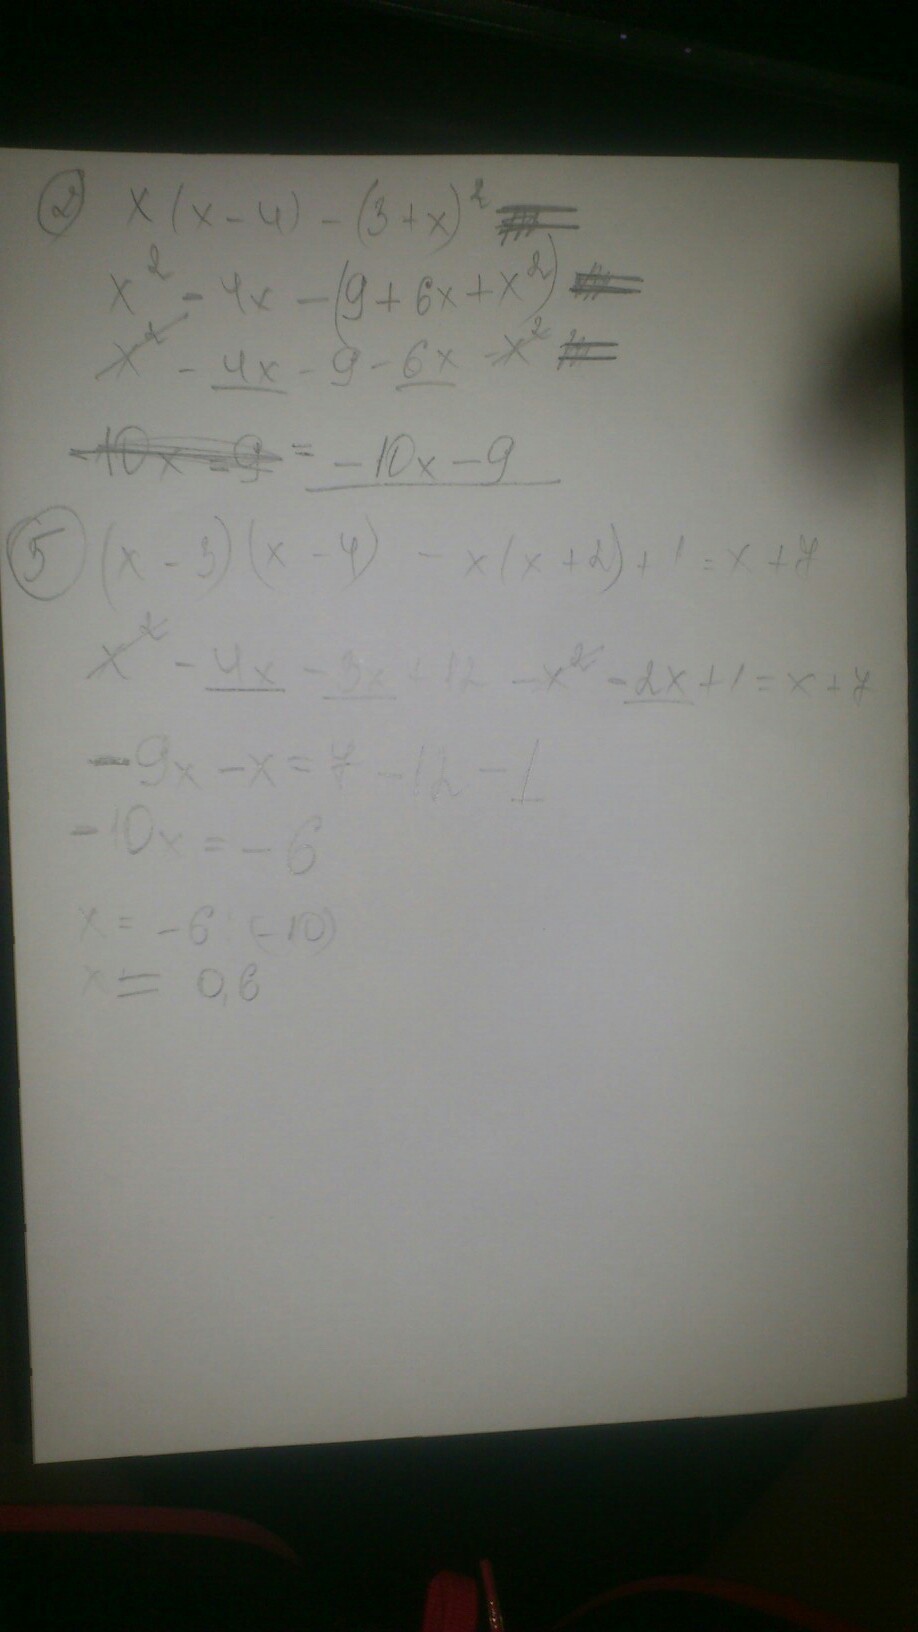 ② x(x-4) - (3+x)²
x² - 4x - (9+6x+x²)
x² - 4x - 9 - 6x - x²
-10x - 9 = -10x - 9
⑤ (x-3)(x-4) - x(x+2)+1=x+7
x² - 4x - 3x+12 - x² - 2x+1=x+7
-9x - x=7 - 12 - 1
-10x = -6
x = -6:(-10)
x = 0,6